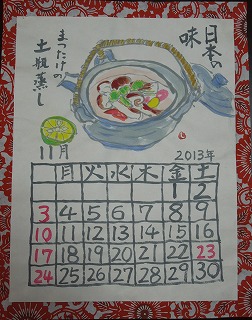 日本の
味
まつたけの
土瓶蒸し
11月
2013年
月 火 水 木 金 土
1 2
3 4 5 6 7 8 9
10 11 12 13 14 15 16
17 18 19 20 21 22 23
24 25 26 27 28 29 30